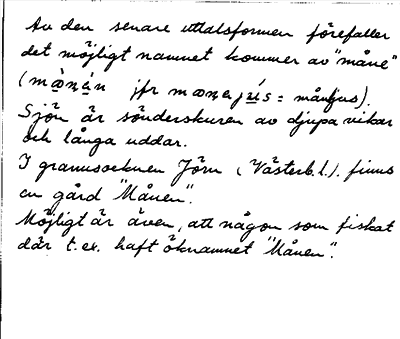 Av den senare uttalsformen förefaller
det möjligt namnet kommer av "måne"
(mànán jfr manejús = månljus).
Sjön är sönderskuren av djupa vikar
och långa uddar.
I grannsocknen Jörn (Västerb.l.). finns
en gård "Månen".
Möjligt är även, att någon som fiskat
där t.ex. haft öknamnet "Månen".